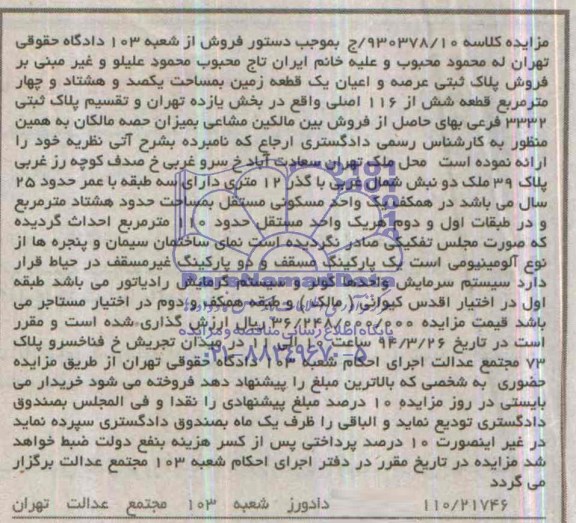 مزایده کلاسه ۹۳۰۳۷۸/۱۰/ج بموجب دستور فروش از شعبه ۱۰۳ دادگاه حقوقی
تهران له محمود محبوب و علیه خانم ایران تاج محبوب محمود علیلو و غیر مبنی بر
فروش پلاک ثبتی عرصه و اعیان یک قطعه زمین بمساحت یکصد و هشتاد و چهار
مترمربع قطعه شش از ۱۱۶ اصلی واقع در بخش یازده تهران و تقسیم پلاک ثبتی
۳۳۳۲ فرعی بهای حاصل از فروش بین مالکین مشاعی بمیزان حصه مالکان به همین
منظور به کارشناس رسمی دادگستری ارجاع که نامبرده بشرح آتی نظریه خود را
ارائه نموده است محل ملک تهران سعادت آباد خ سرو غربی خ صدف کوچه رز غربی
پلاک ۳۹ ملک دو نبش شمال غربی با گذر ۱۲ متری دارای سه طبقه با عمر حدود ۲۵
سال می باشد در همکف یک واحد مسکونی مستقل بمساحت حدود هشتاد مترمربع
و در طبقات اول و دوم هریک واحد مستقل حدود مترمربع احداث گردیده
که صورت مجلس تفکیکی صادر نگردیده است نمای ساختمان سیمان و پنجره ها از
نوع آلومینیومی است یک پارکینگ مسقف و دو پارکینگ غیرمسقف در حیاط قرار
دارد سیستم سرمایش واحدها کولر و سیستم گرمایش رادیاتور می باشد طبقه
اول در اختیار اقدس کیوانی ( مالک ) و طبقه همکف و دوم در اختیار مستاجر می
باشد قیمت مزایده ۳۶/۲۴۸/۰۰۰/۰۰۰ ریال ارزش گذاری شده است و مقرر
است در تاریخ ۹۴/۳/۲۶ ساعت ۱۰ الی ۱۱ در میدان تجریش خ فناخسرو پلاک
۷۳ مجتمع عدالت اجرای احکام شعبه ۱۰۳ دادگاه حقوقی تهران از طریق مزایده
حضوری به شخصی که بالاترین مبلغ را پیشنهاد دهد فروخته می شود خریدار می
بایستی در روز مزایده ۱۰ درصد مبلغ پیشنهادی را نقدا و فی المجلس بصندوق
دادگستری تودیع نماید و الباقی را ظرف یک ماه بصندوق دادگستری سپرده نماید
در غیر اینصورت ۱۰ درصد پرداختی پس از کسر هزینه بنفع دولت ضبط خواهد
شد مزایده در تاریخ مقرر در دفتر اجرای احکام شعبه ۱۰۳ مجتمع عدالت برگزار
می گردد
۱۱۰/۲۱۷۴۶ دادورز شعبه ۱۰۳ مجتمع عدالت تهران
پایگاه اطلاع رسانی مناقصه و مزایده
۰۲۱-۸۸۳۴۹۶۷۰-۵